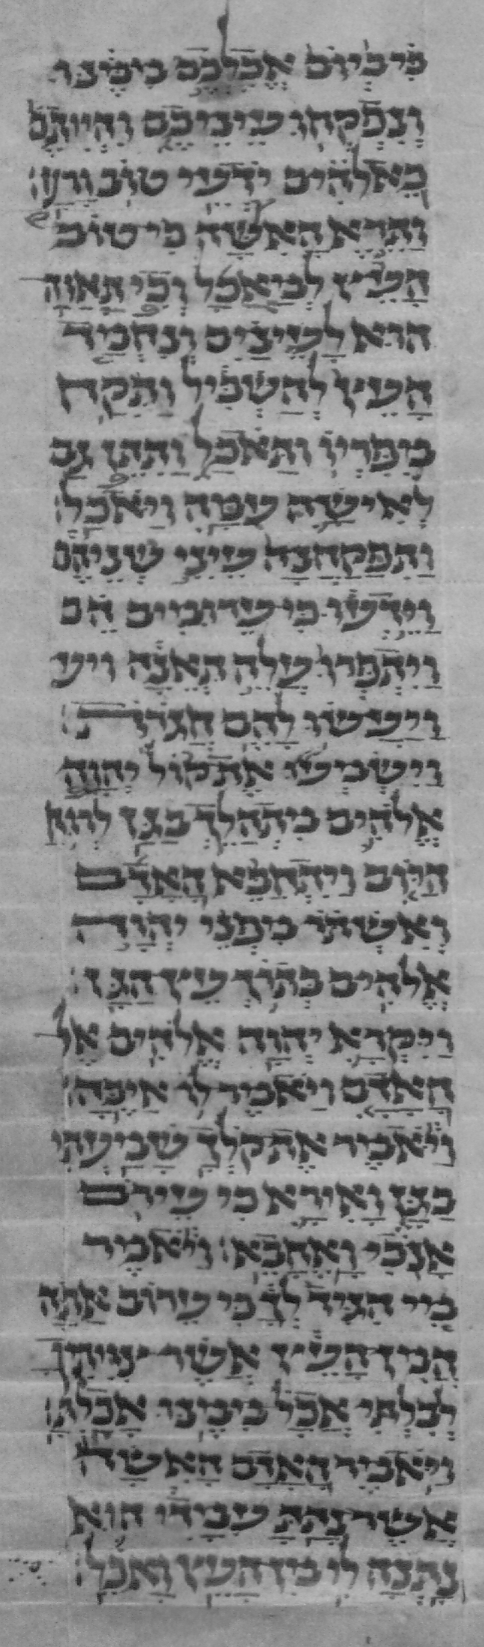 כי ביום אכלכם ממנו
ונפקחו עיניכם והייתם
כאלהים ידעי טוב ורע׃
ותרא האשה כי טוב
העץ למאכל וכי תאוה
הוא לעינים ונחמד
העץ להשכיל ותקח
מפריו ותאכל ותתן גם
לאישה עמה ויאכל׃
ותפקחנה עיני שניהם
וידעו כי ערומים הם
ויתפרו עלה תאנה ויע
ויעשו להם חגרות׃
וישמעו את קול יהוה
אלהים מתהלך בגן לרוח
היום ויתחבא האדם
ואשתו מפני יהוה
אלהים בתוך עץ הגן׃
ויקרא יהוה אלהים אל
האדם ויאמר לו איכה׃
ויאמר את קלך שמעתי
בגן ואירא כי עירם
אנכי ואחבא׃ ויאמר
מי הגיד לך כי ערום אתה
המן העץ אשר צויתך
לבלתי אכל ממנו אכלת׃
ויאמר האדם האשה
אשר נתת עמדי הוא
נתנה לי מן העץ ואכל׃